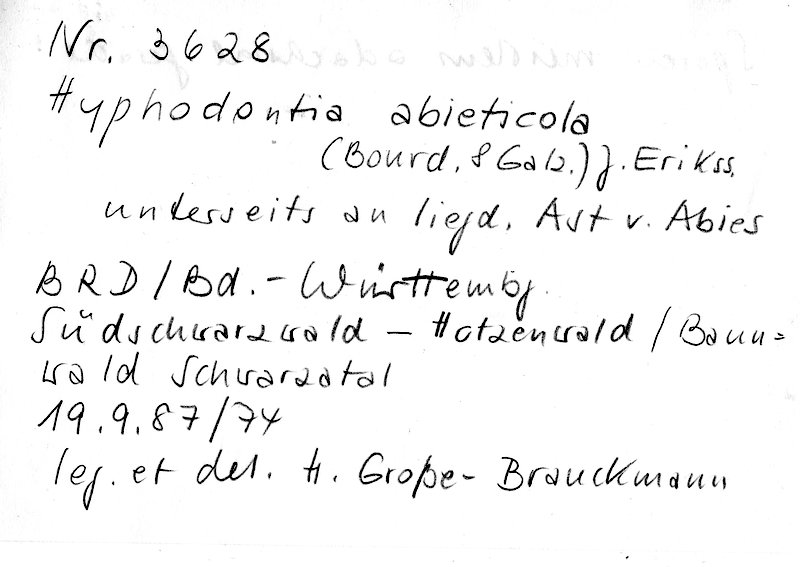 Nr. 3628
Hyphodontia abieticola
(Bourd. & Galz.) J. Erikss.
unterseits an liegd. Ast v. Abies
BRD / Bd.- Württembg.
Südschwarzwald - Hotzenwald / Bann=
wald Schwarzatal
19.9.87/74
leg. et det. H. Große-Brauckmann